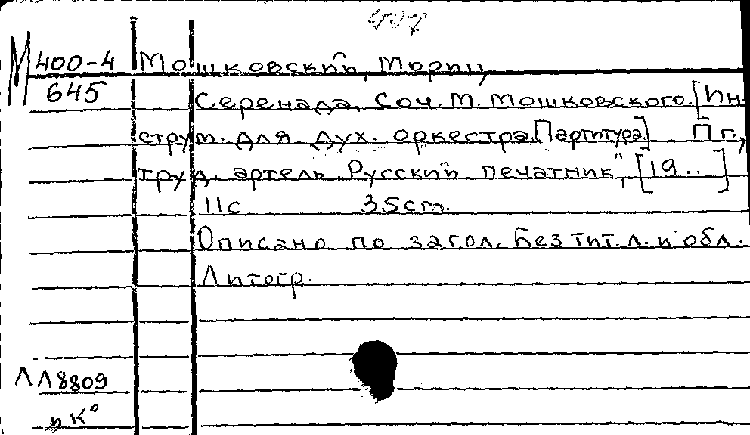 М 400-4 Мошковский, Мориц
645 Серенада. Соч. М. Мошковского. [Ин-
струм. для дух. оркестра. Партитура] Пг.,
труд. артель „Русский печатник", [19..]
11с 35cm.
Описано по загол. Без тит. л. и обл.
Литогр.
ЛЛ8809